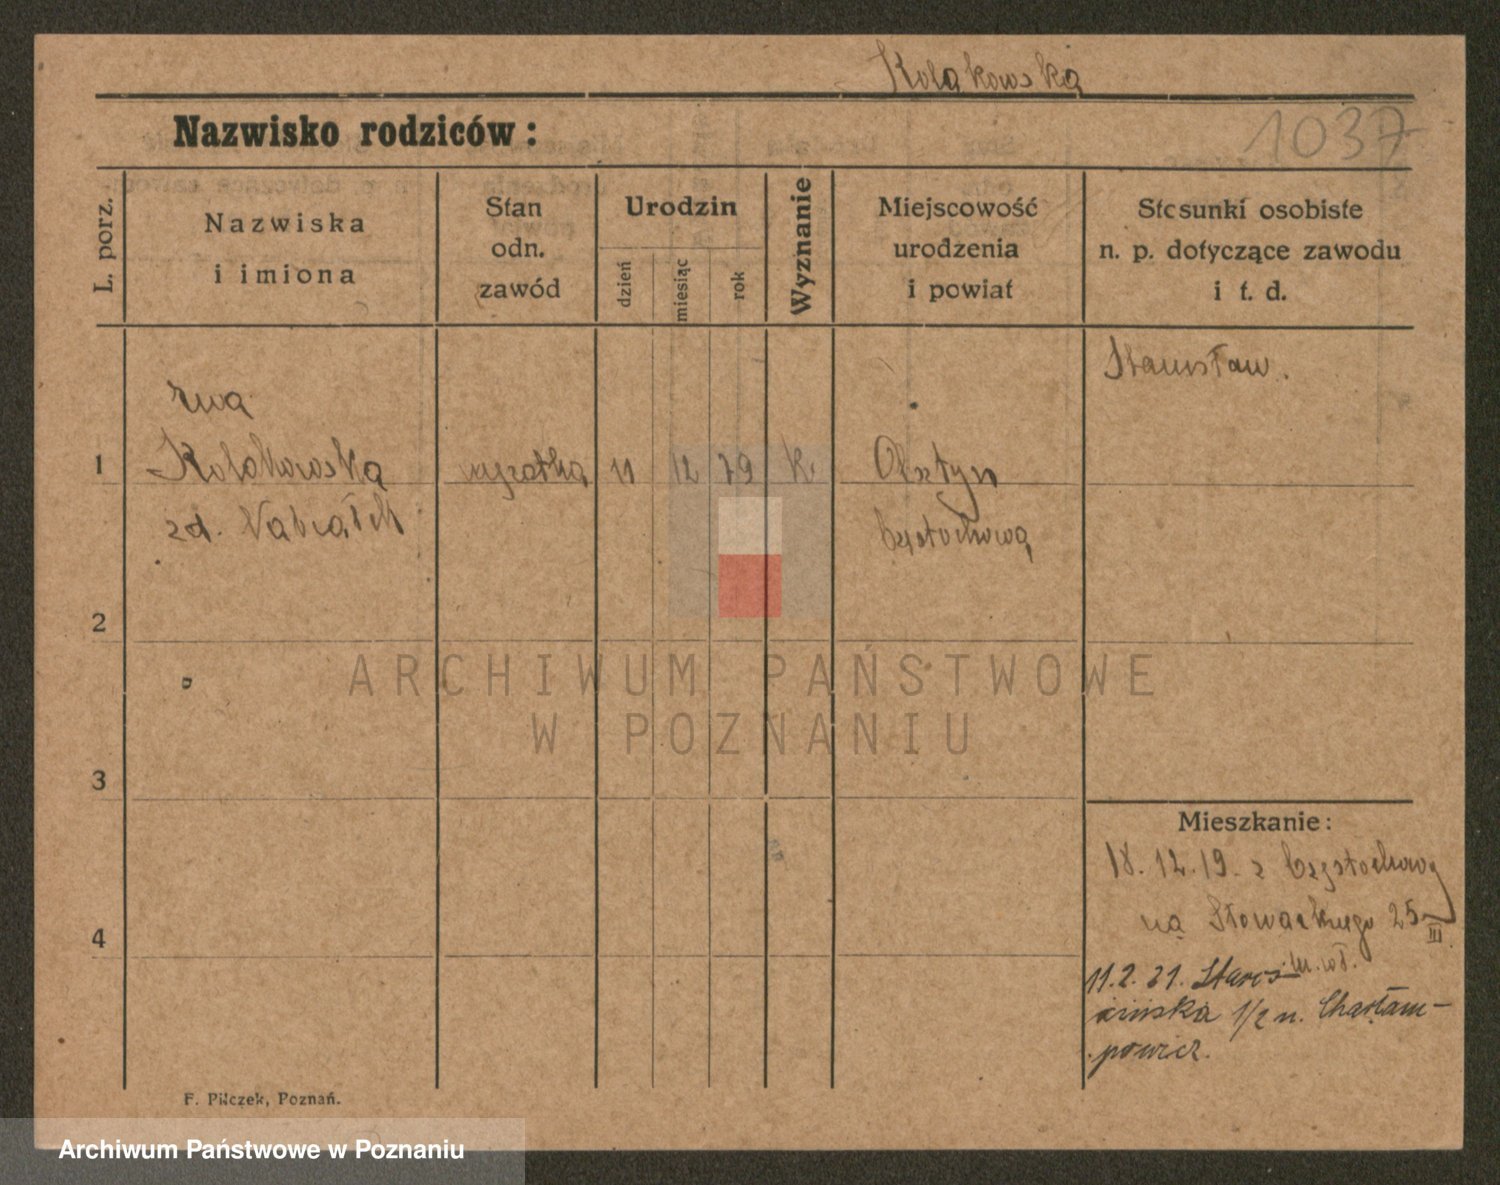 Kołakowska
Nazwisko rodziców:
1037
L. porz.
Nazwiska
i imiona
Stan
odn.
zawód
Urodzin
dzień
miesiąc
rok
Wyznanie
Miejscowość
urodzenia
i powiat
Stosunki osobiste
n. p. dotyczące zawodu
i t. d.
Stanisław.
1
Kołakowska
zd.
11
12
79
k.
Olsztyn
Częstochowa
2
ARCHIWUM PAŃSTWOWE
W POZNANIU
3
Mieszkanie:
18.12.19. z Częstochowy
na Słowackiego 25 III
4
11.2.21. Staro-
1/2 n. Charłam-
powicz.
F. Pilczek, Poznań.
Archiwum Państwowe w Poznaniu